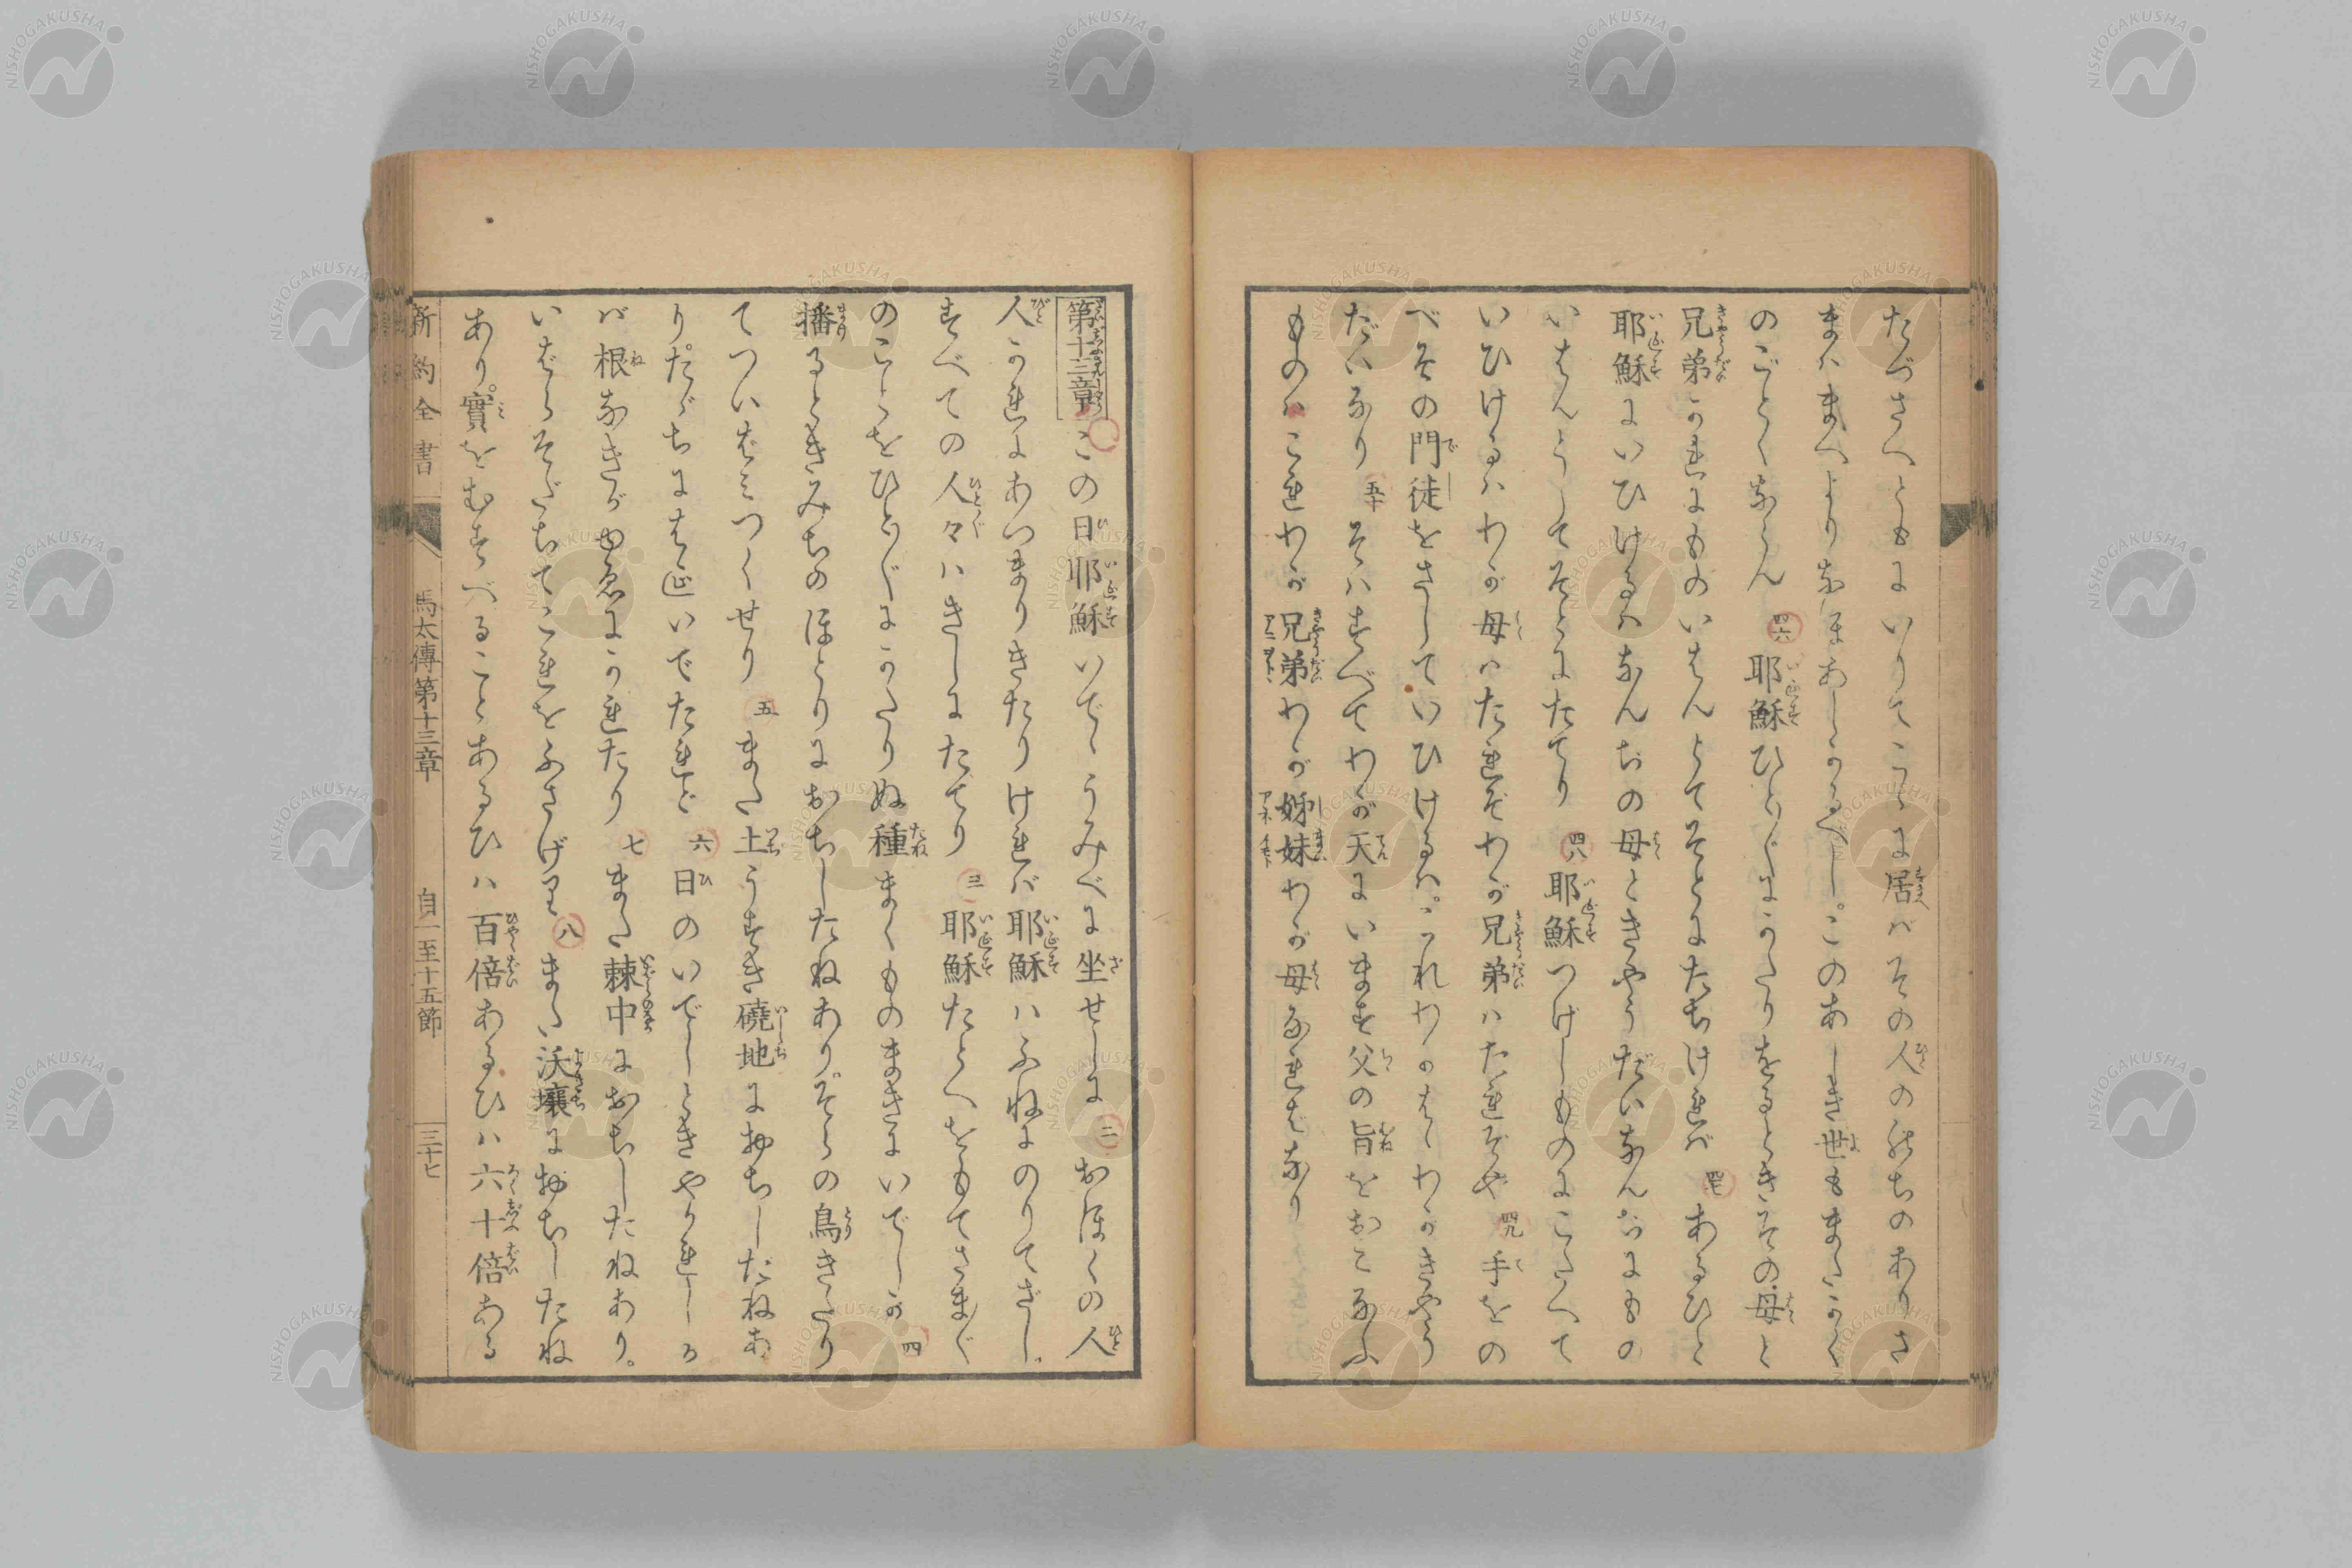 たづさへともにいりてこゝに居バその人ののちのありさ
まハまへよりなほあしかるべし。このあしき世もまたかく
のごとくならん 四六 耶穌ひとびとにかたりをるときその母と
兄弟かれにものいはんとてそとにたちけれバ 四七 あるひと
耶穌にいひけるハなんぢの母ときやうだいなんぢにもの
いはんとしてそとにたてり 四八 耶穌つげしものにこたへて
いひけるハわが母ハたれぞわが兄弟ハたれぞや 四九 手をの
べその門徒をさしていひけるハ。これわがはゝわがきやう
だいなり 五十 そハすべてわが天にいます父の旨をおこなふ
ものハこれわが兄弟わが姉妹わが母なれはなり
第十三章 この日耶穌いでゝうみべに坐せしに 二 おほくの人
人かれにあつまりきたりけれバ耶穌ハふねにのりてざし。
すべての人々ハきしにたてり 三 耶穌たとへをもてさまざま
のことをひとびとにかたりぬ種まくものまきにいでしが 四
播るときみちのほとりにおちしたねあり。そらの鳥きたり
てついばみつくせり 五 また土うすき磽地におちしたねあ
り。たゞちにはえいでたれど 六 日のいでしときやかれしか
バ根なきがゆゑにかれたり 七 また棘中におちしたねあり。
いばらそだちてこれをふさげり 八 また沃壤におちしたね
あり。實をむすべることあるひハ百倍あるひハ六十倍ある
新約全書 馬太傳第十三章 自一至十五節 三十七